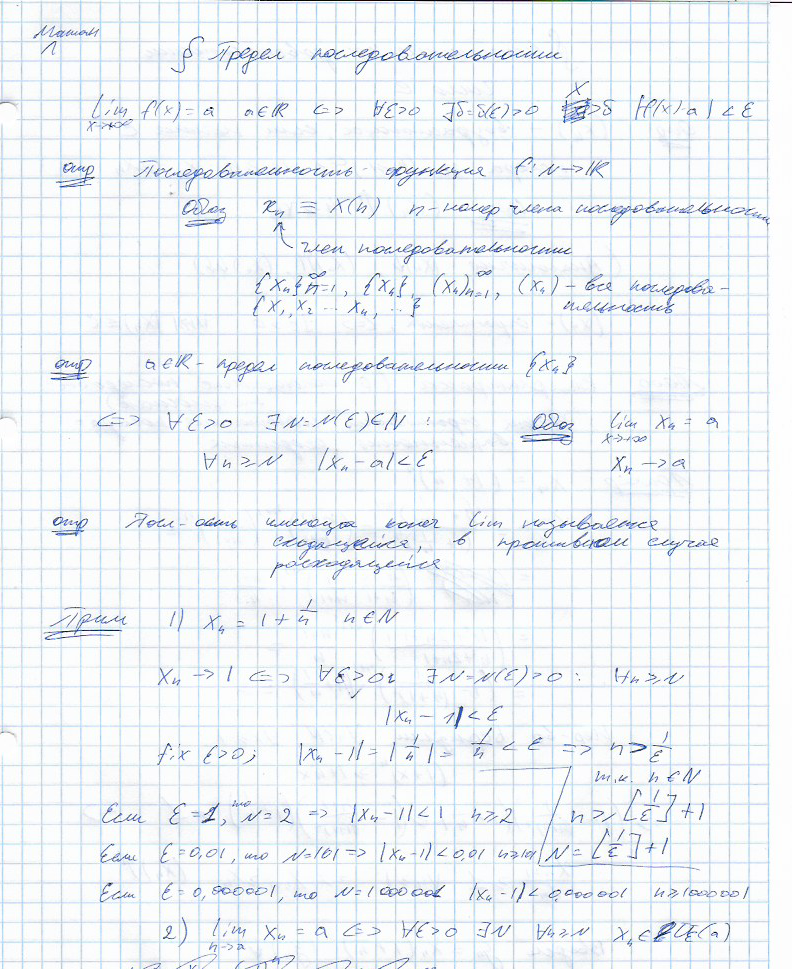 Матан
1
§ Предел последовательности
lim f(x) = a a∈ℝ <=> ∀ε>0 ∃δ=δ(ε)>0 x>δ |f(x)-a| < ε
x→+∞
опр Последовательность - функция f: N→ℝ
Обозн xₙ ≡ x(n) n - номер члена последовательности
член последовательности
{xₙ}ₙ₌₁^∞, {xₙ}, (xₙ)ₙ₌₁^∞, (xₙ) - вся последова-
{x₁, x₂ ... xₙ, ...} тельность
опр a∈ℝ - предел последовательности {xₙ}
<=> ∀ε>0 ∃N=N(ε)∈N : Обозн lim xₙ = a
x→+∞
∀n≥N |xₙ-a|<ε xₙ→a
опр Посл-ость имеющая конеч lim называется
сходящейся, в противном случае
расходящейся
Прим 1) xₙ = 1 + 1/n n∈N
xₙ→1 <=> ∀ε>0 ∃N=N(ε)>0 : ∀n≥N
|xₙ-1|<ε
fix ε>0; |xₙ-1| = |1/n| = 1/n < ε => n > 1/ε
т.к. n∈N
Если ε=1, то N=2 => |xₙ-1|<1 n≥2 n≥[1/ε]+1
Если ε=0,01, то N=101 => |xₙ-1|<0,01 n≥101 N=[1/ε]+1
Если ε=0,000001, то N=1000001 |xₙ-1|<0,000001 n≥1000001
2) lim xₙ = a <=> ∀ε>0 ∃N ∀n≥N xₙ∈Uε(a)
n→a